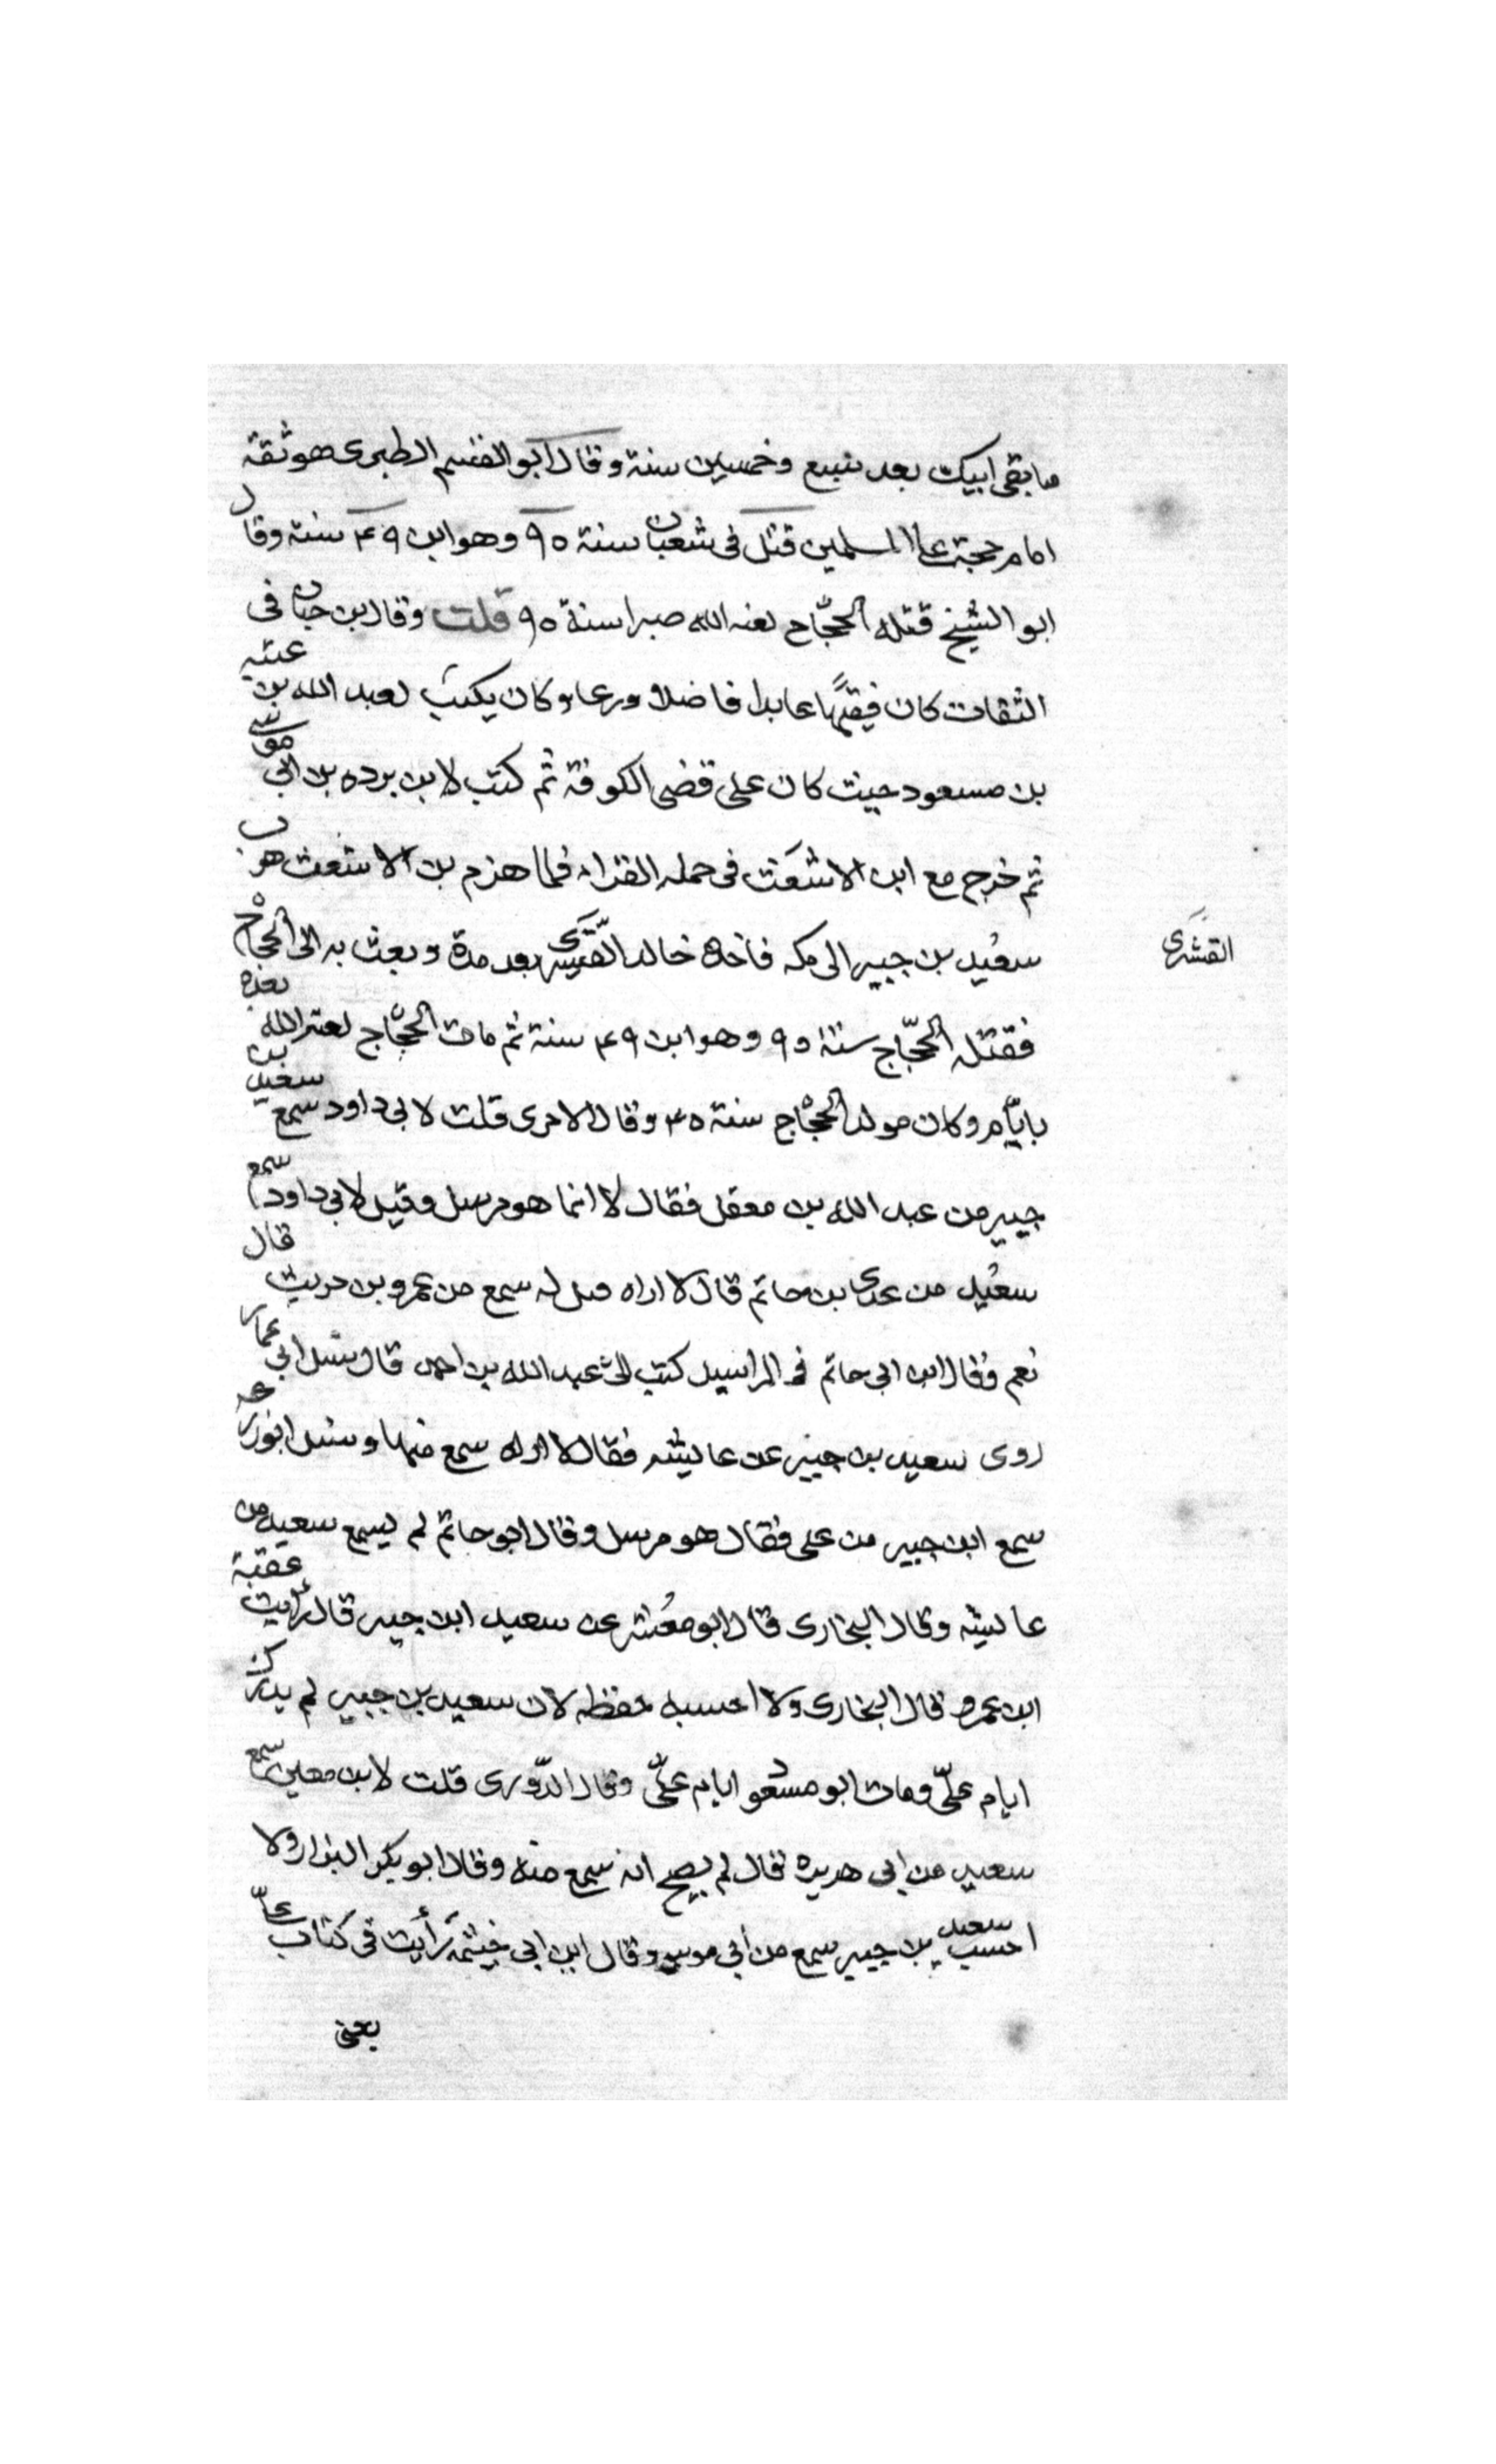 ما بقى ابيك بعد سبع وخمسين سنة وقال ابو القسم الطبرى هو ثقة
امام حجة على المسلمين قتل فى شعبان سنة ٩٥ وهو ابن ٤٩ سنة وقال
ابو الشيخ قتله الحجّاج لعنه الله صبرا سنة ٩٥ قلت وقال بن حبان فى
الثقات كان فيقهًا عابدا فاضلا ورعا وكان يكتب لعبد الله بن عتبه
بن مسعود حيث كان على قضى الكوفة ثم كتب لابن برده بن ابى موسى
ثم خرج مع ابن الاشعث فى حمله القراء فلما هزم بن الاشعث هرب
سعيد بن جبير الى مكه فاخذه خالد القسرى بعد مدة وبعث به الى الحجاج
القشرى
فقتله الحجّاج سنة ٩٥ وهو ابن ٤٩ سنة ثم مات الحجّاج لعنه الله بعده
بايّام وكان مولد الحجّاج سنة ٤٥ وقال الاجرى قلت لابى داود سمع سعيد بن
جبير من عبد الله بن معقل فقال لا انما هو مرسل وقيل لابى داود سمع
سعيد من عدى بن حاتم قال لا اراه قيل له سمع من عمرو بن حريث قال
نعم وقال ابن ابى حاتم فى المراسيل كتب الىّ عبد الله بن احمد قال سئل ابى عما
روى سعيد بن جبير عن عايشه فقال لا اراه سمع منها وسئل ابو زرعه
سمع ابن جبير من على فقال هو مرسل وقال ابو حاتم لم يسمع سعيد من
عايشه وقال البخارى قال ابو معشر عن سعيد ابن جبير قال رأيت عقبة
ابن عمرو قال البخارى ولا احسبه حفظه لان سعيد بن جبير لم يدرك
ايام علىّ ومات ابو مسعود ايام علىّ وقال الدّورى قلت لابن معين سمع
سعيد من ابى هريره فقال لم يصح انه سمع منه وقال ابو بكر البزار ولا
احسب سعيد بن جبير سمع من أبى موسى وقال ابن ابى خيثمه رأيت فى كتاب علىّ
يعنى